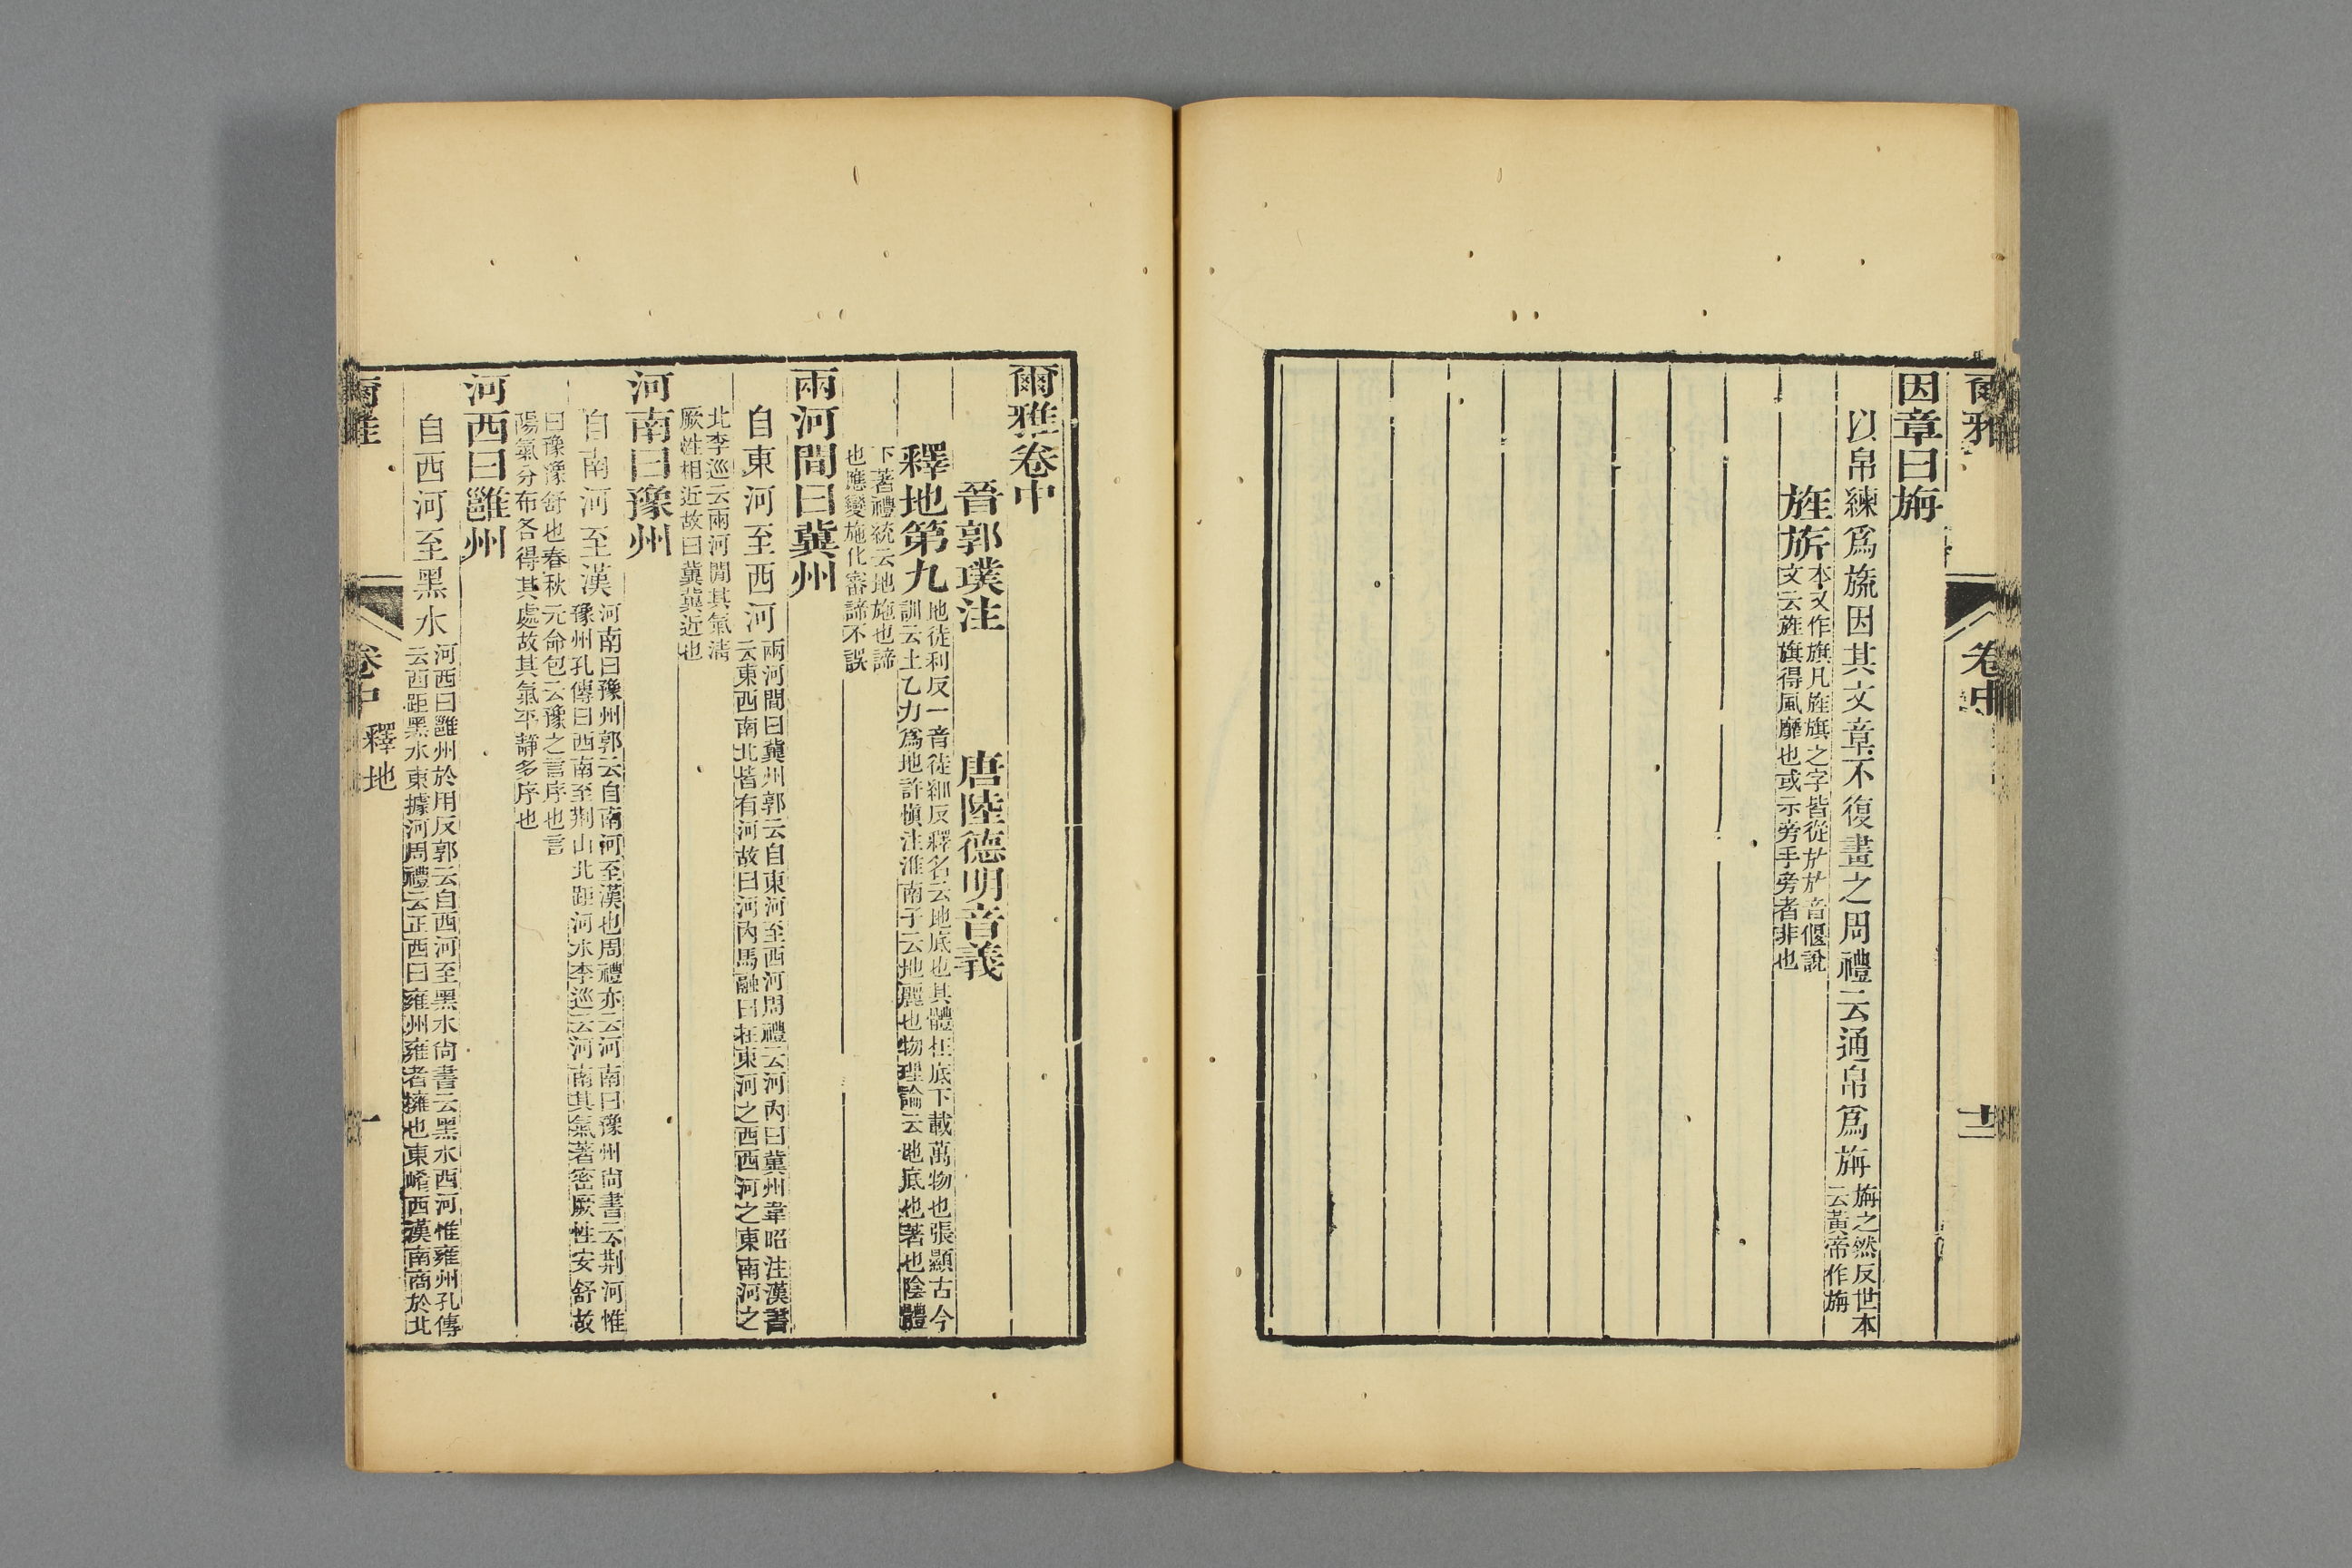 爾雅
卷中
十二
因章曰旃
以帛練爲旒因其文章不復畫之周禮云通帛爲旃
旃之然反世本
云黃帝作旃
旌旂
本又作旗凡旌旗之字皆從㫃㫃音偃說
文云旌旗得風靡也或示旁手旁者非也
爾雅卷中
晉郭璞注 唐陸德明音義
釋地第九
地徒利反一音徒細反釋名云地底也其體在底下載萬物也張顯古今
訓云土乙力爲地許愼注淮南子云地麗也物理論云地底也著也陰體
下著禮統云地施也諦
也應變施化審諦不誤
兩河間曰冀州
自東河至西河
兩河間曰冀州郭云自東河至西河周禮云河內曰冀州韋昭注漢書
云東西南北皆有河故曰河內馬融曰在東河之西西河之東南河之
北李巡云兩河閒其氣清
厥性相近故曰冀冀近也
河南曰豫州
自南河至漢
河南曰豫州郭云自南河至漢也周禮亦云河南曰豫州尙書云荆河惟
豫州孔傳曰西南至荆山北距河水李巡云河南其氣著密厥性安舒故
曰豫豫舒也春秋元命包云豫之言序也言
陽氣分布各得其處故其氣平靜多序也
河西曰雝州
自西河至黑水
河西曰雝州於用反郭云自西河至黑水尙書云黑水西河惟雍州孔傳
云西距黑水東據河周禮云正西曰雍州雍者擁也東崤西漢南商於北
爾雅
卷中
釋地
一